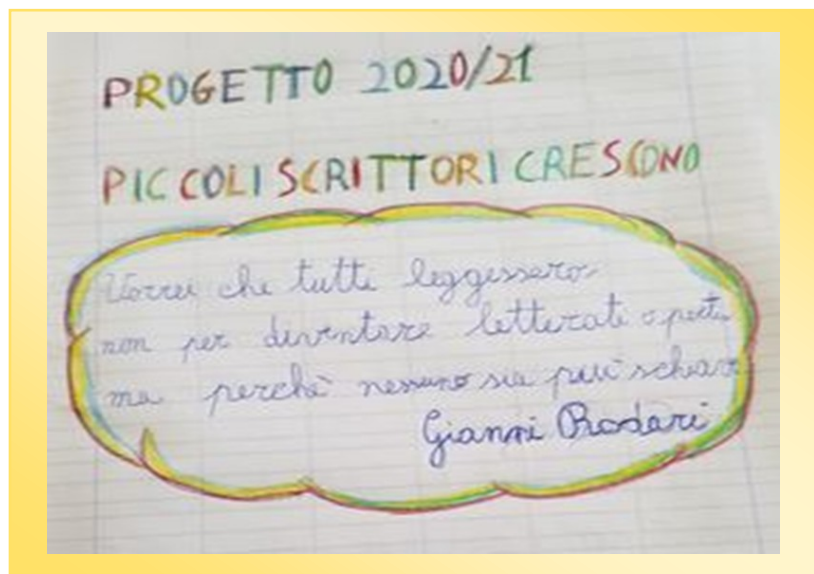 PROGETTO 2020/21
PICCOLI SCRITTORI CRESCONO
Vorrei che tutti leggessero
non per diventare letterati o poeti
ma perchè nessuno sia più schiavo
Gianni Rodari